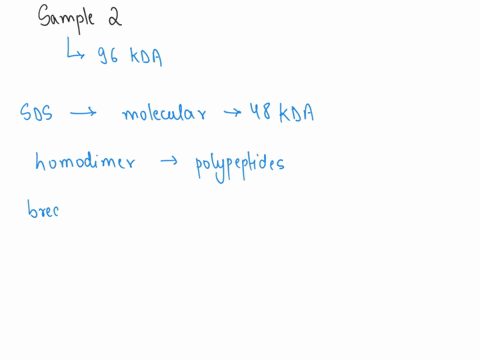 Sample 2
↳ 96 KDA
SDS → molecular → 48 KDA
homodimer → polypeptides
brec